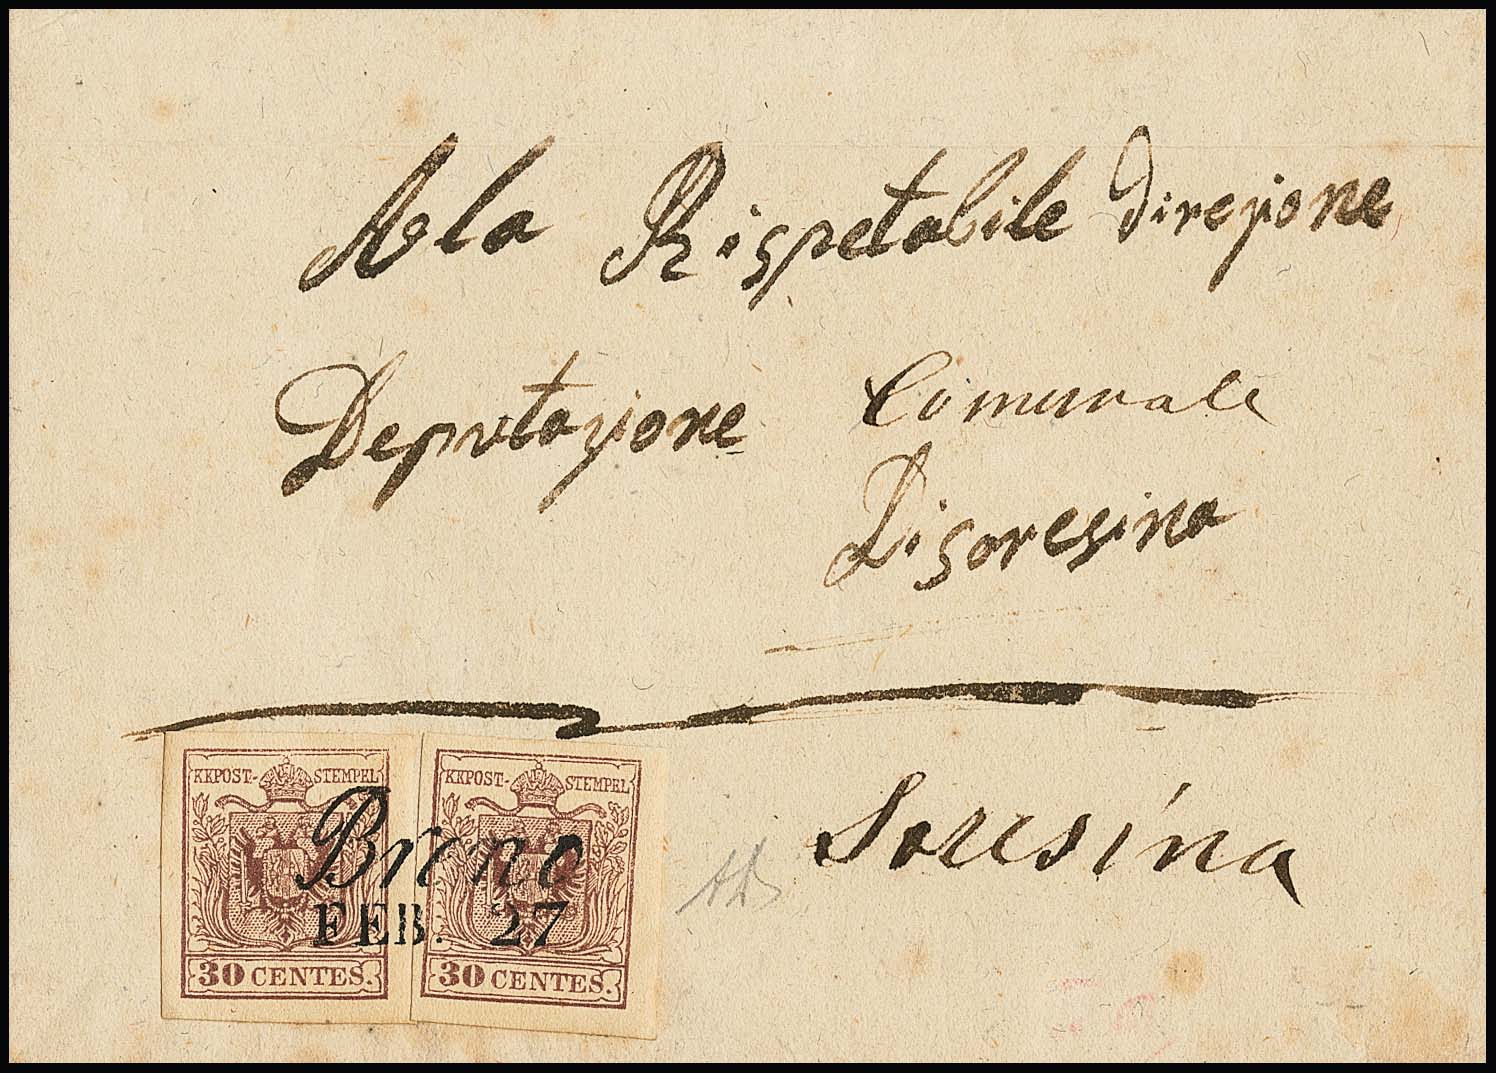 Ala Rispetabile direzione
Deputazione Comunale
Disoresina
Soresina
KKPOST-STEMPEL
30 CENTES.
KKPOST-STEMPEL
30 CENTES.
Breno
FEB. 27